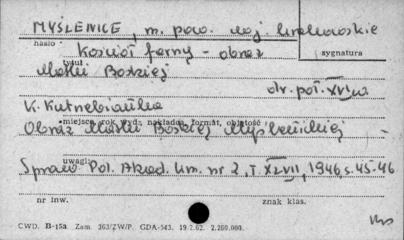 MYŚLENICE, m. pow. woj. krakowskie
hasło
Kościół farny - obraz
sygnatura
tytuł
Matki Boskiej
dr. poł. XVI w
K. Kutrzebianka
miejsce, rok wyd., nakładca, format, objętość
Obraz Matki Boskiej Myślenickiej -
uwagi
Spraw. Pol. Akad. Um. nr 2, T. XLVII, 1946, s. 45-46
nr inw.
znak klas.
CWD. B-15a Zam. 363/ZW/P. GDA-543. 19.2.62. 2.260.000.